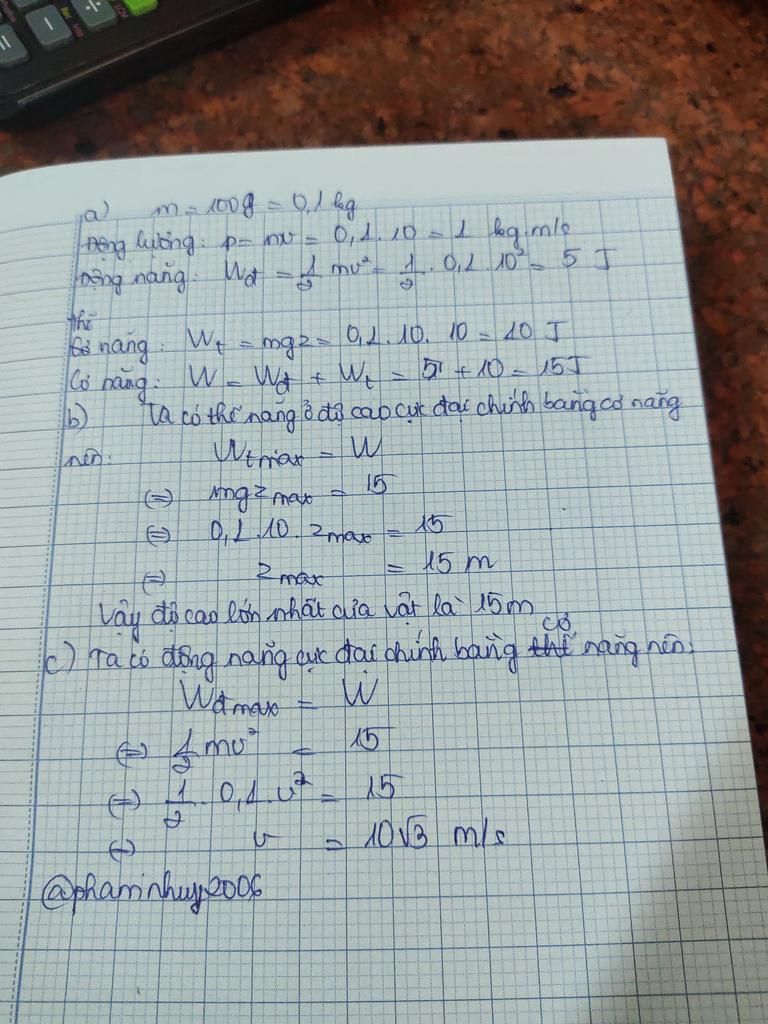 a) m = 100g = 0,1 kg
Động lượng: p = mv = 0,1 . 10 = 1 kg.m/s
Động năng: Wđ = 1/2 mv² = 1/2 . 0,1 . 10² = 5 J
Thế
năng: Wt = mgz = 0,1 . 10 . 10 = 10 J
Cơ năng: W = Wđ + Wt = 5 + 10 = 15J
b) Ta có thế năng ở độ cao cực đại chính bằng cơ năng
nên: Wtmax = W
⇔ mgzmax = 15
⇔ 0,1 . 10 . zmax = 15
⇔ zmax = 15 m
Vậy độ cao lớn nhất của vật là 15m
c) Ta có động năng cực đại chính bằng cơ năng nên:
Wđmax = W
⇔ 1/2 mv² = 15
⇔ 1/2 . 0,1 . v² = 15
⇔ v = 10√3 m/s